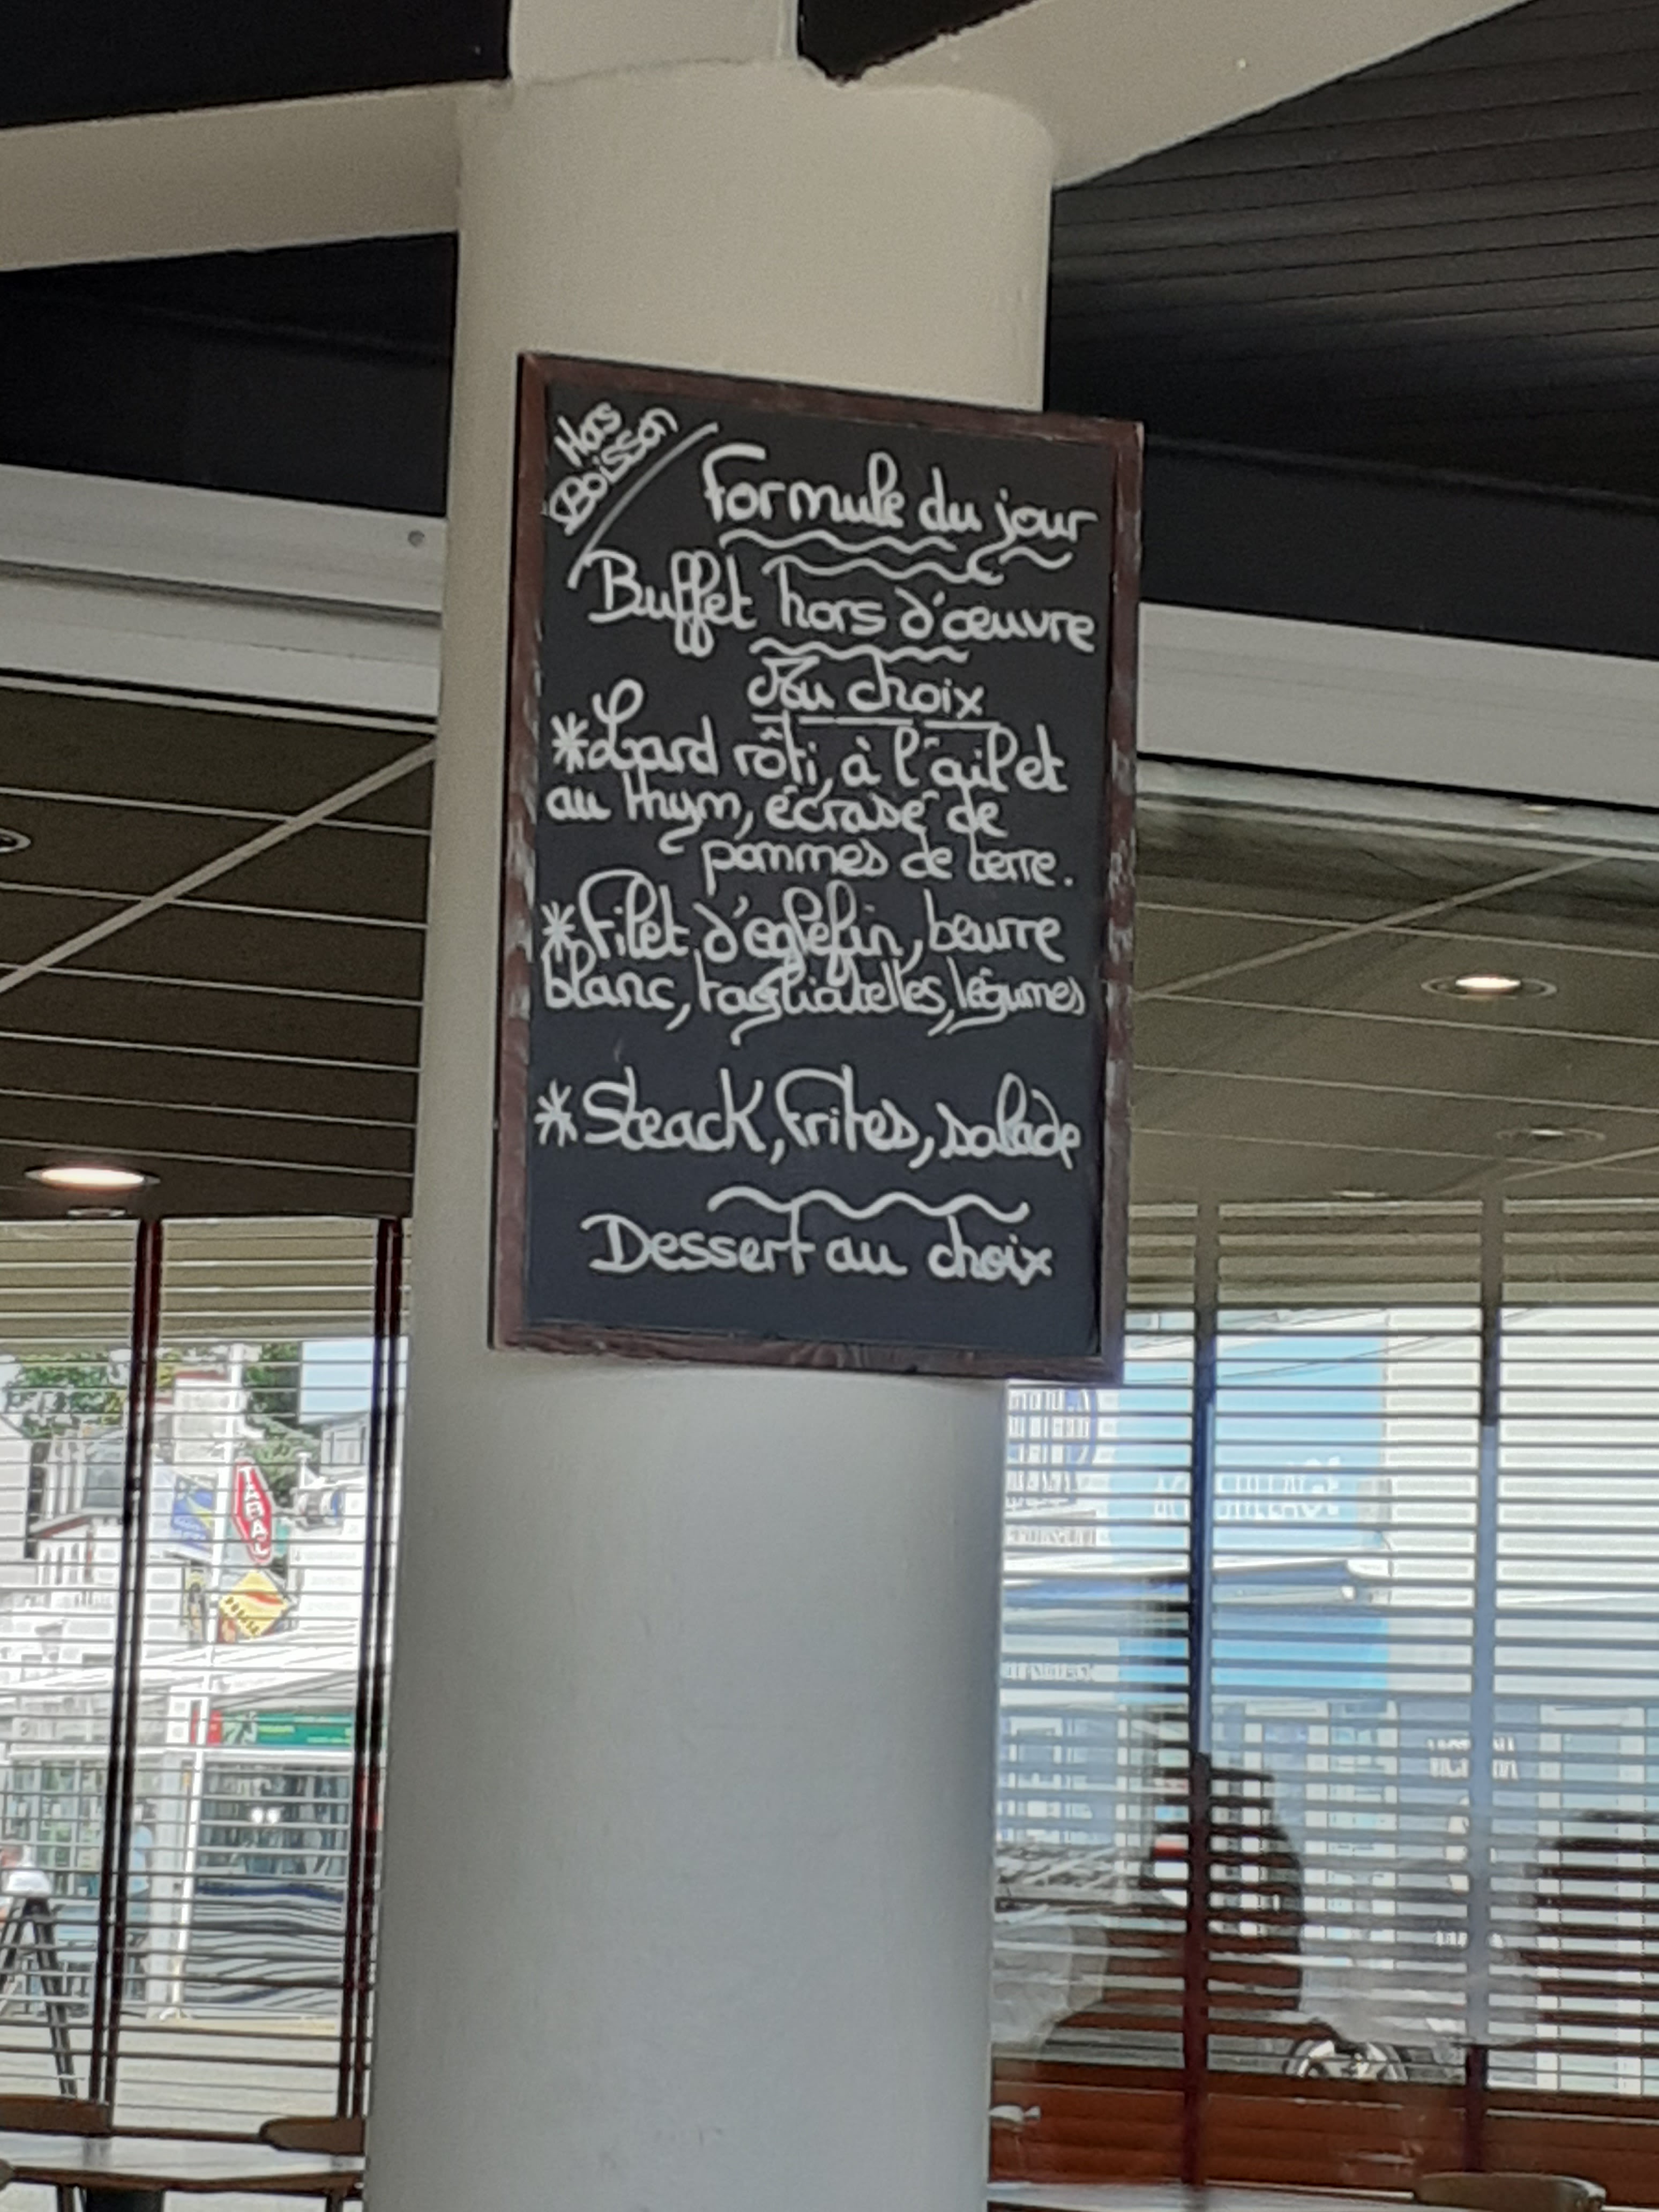 Hors
Boisson
Formule du jour
Buffet hors d'œuvre
Au choix
*Lard rôti, à l'ail et
au thym, écrasé de
pommes de terre.
*Filet d'eglefin, beurre
blanc, tagliatelles, légumes
*Steack, frites, salade
Dessert au choix
TABAC
PRESSE